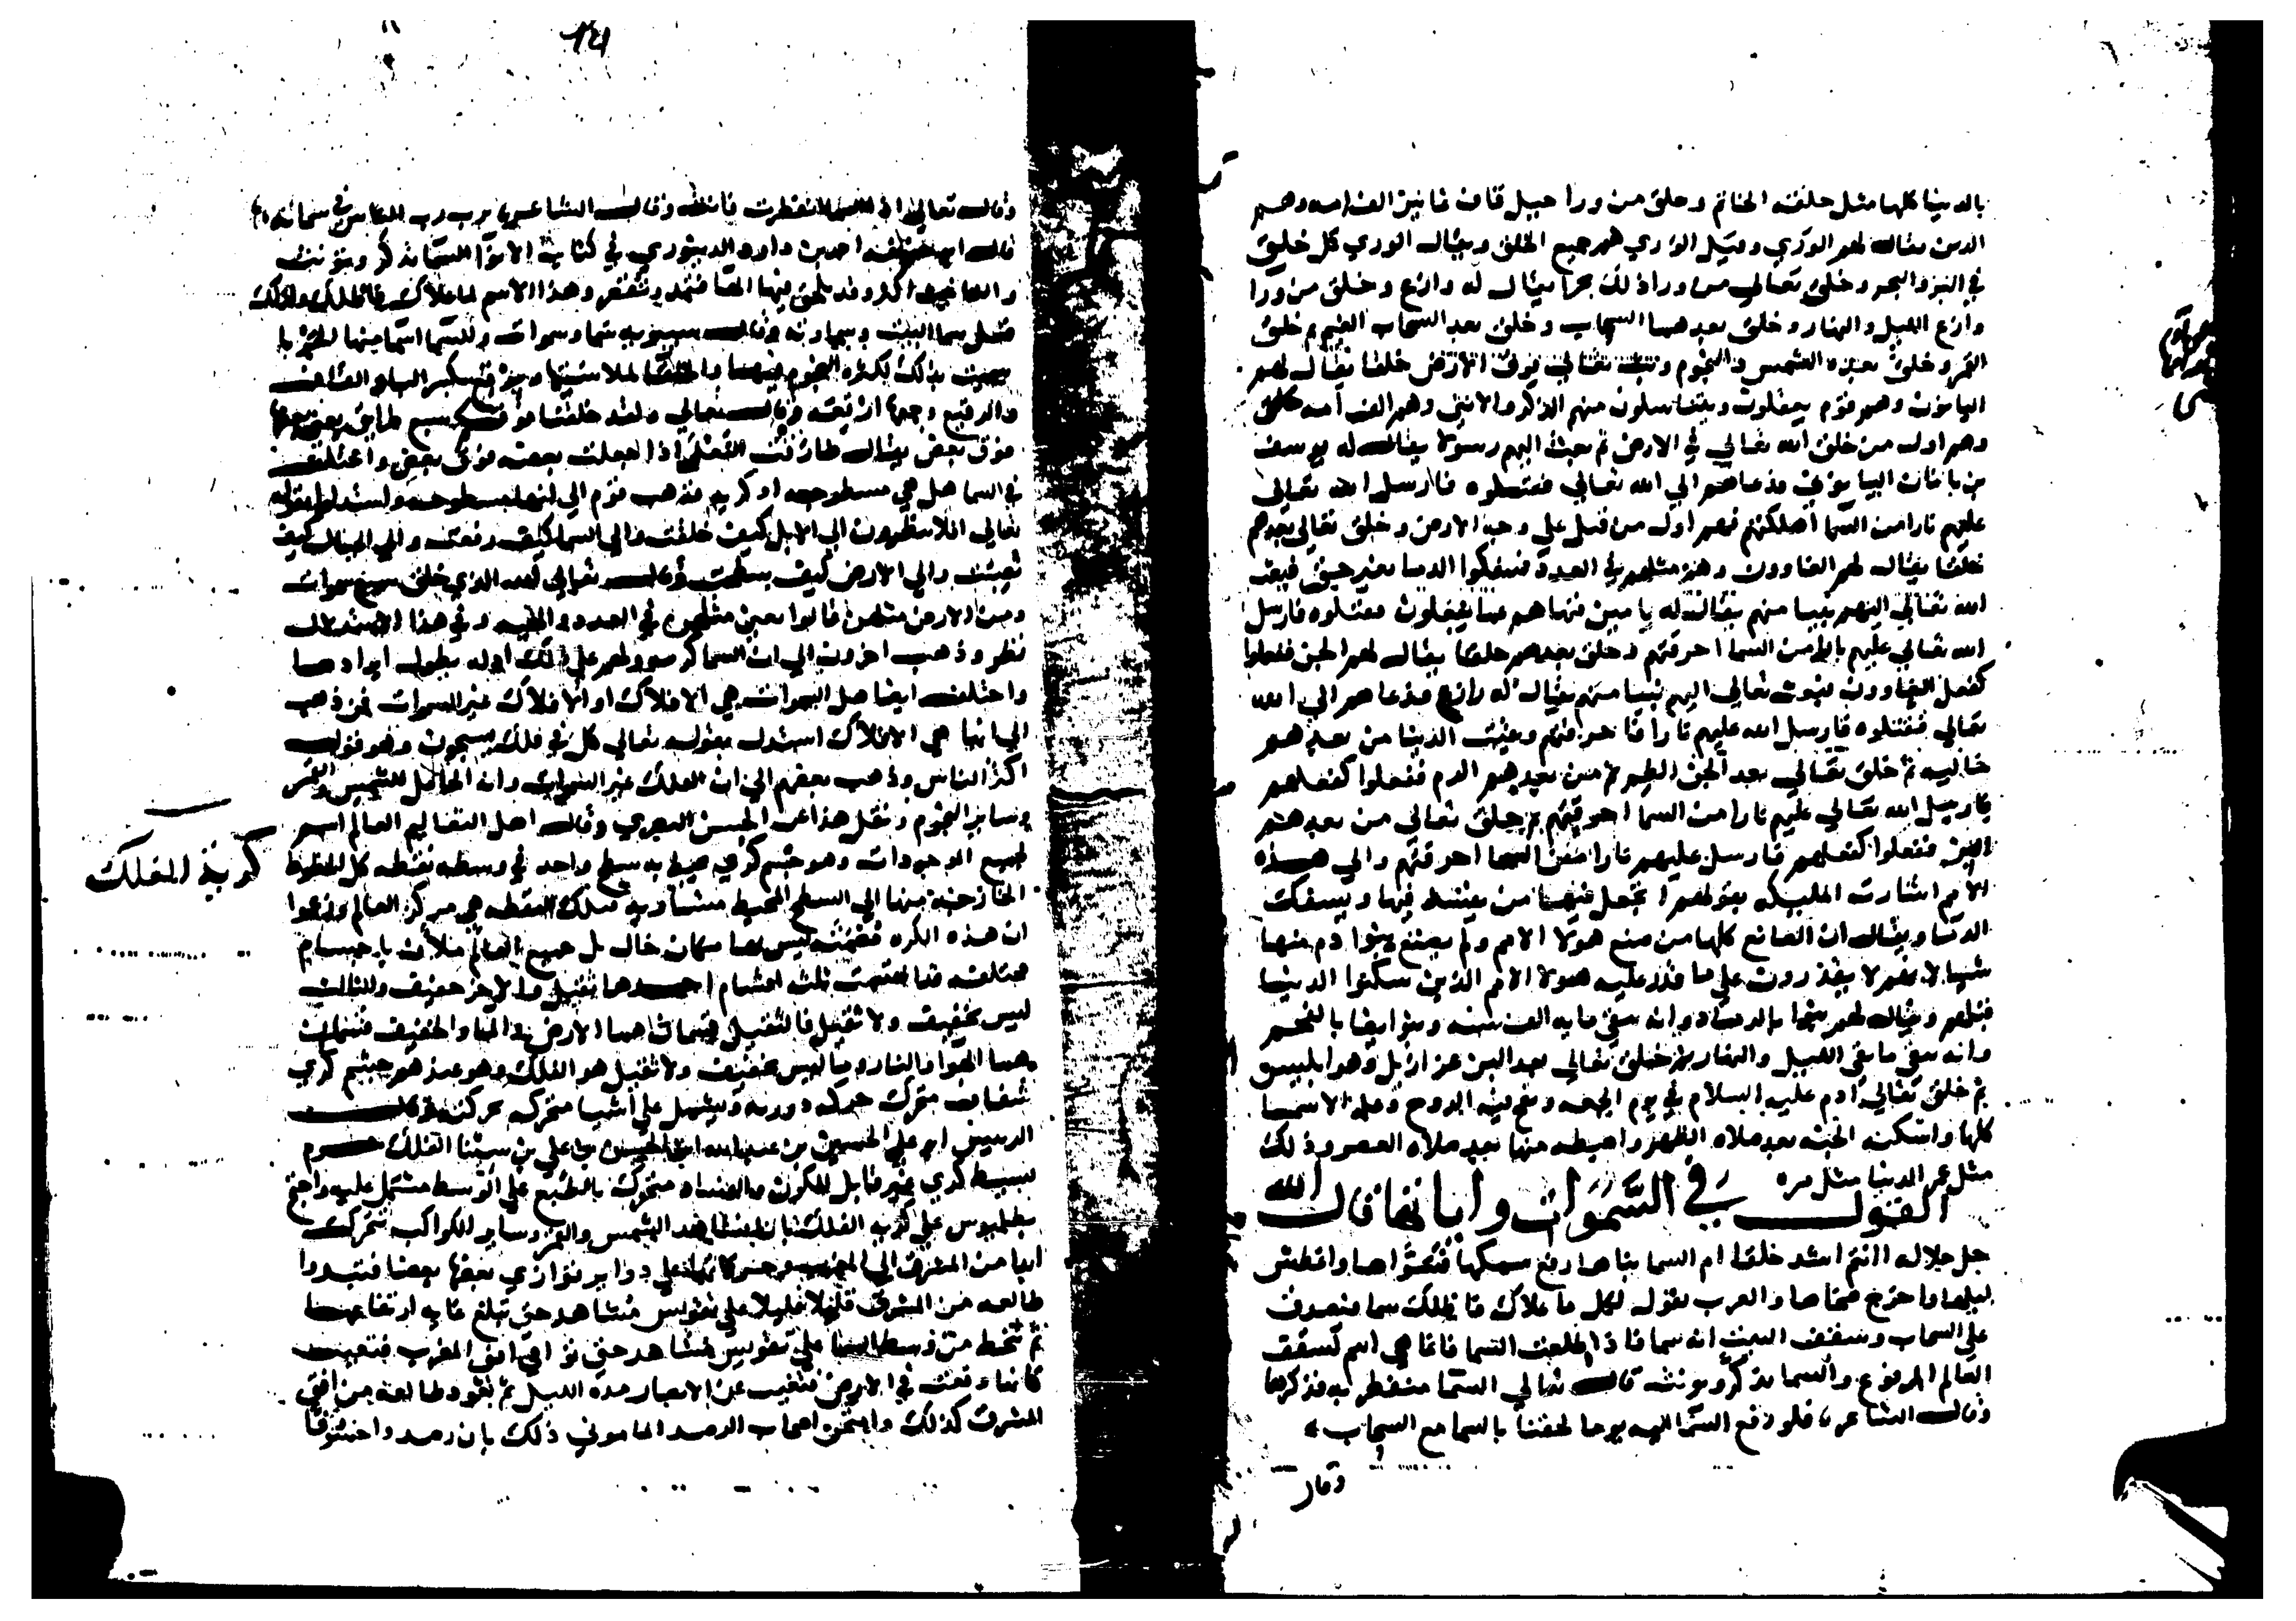 بالدنيا كلها مثل حلقة الخاتم وخلق من ورا جبل قاف ثمانين الف امه وهم
الدين يقال لهم الوري وقيل الوري هم جميع الخلق ويقال الوري كل خلق
في البر والبحر وخلق تعالي من وراذلك بحرا يقال له وازع وخلق من ورا
وازع الليل والنهار وخلق بعدهما السحاب وخلق بعد السحاب الغيم ثم خلق
القمر وخلق بعده الشمس والنجوم تعالي فوق الارض خلقا يقال لهم
وهم قوم يعقلون ويتناسلون منهم الذكر والانثي وهم الف امه
وهم اول من خلق الله تعالي في الارض ثم بعث اليهم رسولا يقال له يوسف
بن فدعاهم الي الله تعالي فقتلوه فارسل الله تعالي
عليهم نارا من السما اهلكتهم فهم اول من قتل علي وجه الارض وخلق تعالي بعدهم
خلقا يقال لهم الغاوون وهم مثلهم في العدد فسفكوا الدما بغير حق فبعث
الله تعالي اليهم نبيا منهم يقال له يامين فنهاهم عما يفعلون فقتلوه فارسل
الله تعالي عليهم نارا من السما احرقتهم وخلق بعدهم خلقا يقال لهم الجن ففعلوا
كفعل الغاوون فبعث تعالي اليهم نبيا منهم يقال له وازع فدعاهم الي الله
تعالي فقتلوه فارسل الله عليهم نارا فاحرقتهم وبقيت الدنيا من بعدهم
خاليه ثم خلق تعالي بعد الجن الطم ثم من بعدهم الدم ففعلوا كفعلهم
فارسل الله تعالي عليهم نارا من السما احرقتهم ثم خلق تعالي من بعدهم
البن ففعلوا كفعلهم فارسل عليهم نارا من السما احرقتهم والي هذه
الامم اشارت المليكه بقولهم اتجعل فيها من يفسد فيها ويسفك
الدما ويقال ان الصانع كلها من صنع هولا الامم ولم يصنع بنوا دم منها
شيا لانهم لا يقدرون علي ما قدر عليه هولا الامم الذين سكنوا الدنيا
قبلهم ويقال لهم وانه بقي مايه الف سنه
وانه بقي ما بقي الليل والنهار ثم خلق تعالي بعد البن عزازيل وهو ابليس
ثم خلق تعالي ادم عليه السلام في يوم الجمعه ونفخ فيه الروح وعلمه الاسما
كلها واسكنه الجنه بعد صلاه الظهر واهبطه منها بعد صلاه العصر وذلك
مثل عمر الدنيا مثل مره
القول في السموات وايا تها قال الله
جل جلاله اانتم اشد خلقا ام السما بناها رفع سمكها فسواها واغطش
ليلها واخرج ضحاها والعرب تقول لكل ما علاك فاظلك سما فيصدق
علي السحاب وسقف البيت انه سما فاذا اطلعت السما فانما هي اسم لسقف
العالم المرفوع والسما يذكر ويونث قال تعالي السما منفطر به فذكرها
وقال الشاعر فلو رفع السما اليه يوما لحقنا بالسما مع السحاب
وقال
وقال تعالي اذا السما انفطرت فانثه وقال الشاعر
قال ابو حنيفه احمد بن داود الدينوري في كتاب الانوا السما يذكر ويونث
والتانيث اكثر وقد يلحق فيها الها فتمد وتقصر وهذا الاسم لما علاك فاظلك ولذلك
قيل سما البيت وسماوته وقال سيبويه سما وسموات وللسما اسما منها الجربا
سميت بذلك لكثره النجوم فيها والخلقا لملاستها وبرقع بكسر البا والقاف
والرقيع وجمعها ارقعه وقال تعالي ولقد خلقنا فوقكم سبع طرايق يعني بعضها
فوق بعض يقال طارقت النعل اذا جعلت بعضه فوق بعض واختلف
في السما هل هي مسطوحه او كريه فذهب قوم الي انها مسطوحه واستدلوا بقوله
تعالي افلا ينظرون الي الابل كيف خلقت والي السما كيف رفعت والي الجبال كيف
نصبت والي الارض كيف سطحت وقال تعالي الله الذي خلق سبع سموات
ومن الارض مثلهن قالوا يعني مثلهن في العدد والهيه وفي هذا الاستدلال
نظر وذهب اخرون الي ان السما كريه ولهم علي ذلك ادله يطول ايرادها
واختلف ايضا هل السموات هي الافلاك او الافلاك غير السموات فمن ذهب
الي انها هي الافلاك استدل بقوله تعالي كل في فلك يسبحون وهو قول
اكثر الناس وذهب بعضهم الي ان الفلك غير السموات وان الحامل للشمس والقمر
وساير النجوم ونقل هذا عن الحسن البصري وقال اهل التعاليم العالم اسم
لجميع الموجودات وهو جسم كري محيط به سطح واحد في وسطه نقطه كل الخطوط
كرية الفلك
الخارجه منها الي السطح المحيط متساويه تلك النقطه هي مركز العالم وزعموا
ان هذه الكره ليس بها مكان خال بل جميع العالم ملان باجسام
مختلفه قد انقسمت ثلث اقسام احدها ثقيل والاخر خفيف والثالث
ليس بخفيف ولا ثقيل فالثقيل قسمان هما الارض والما والخفيف قسمان
هما الهوا والنار وما ليس بخفيف ولا ثقيل هو الفلك وهو عندهم جسم كري
شفاف متحرك حركه دوريه ويشتمل علي اشيا متحركه بحركته وقال
الرييس ابو علي الحسين بن عبد الله بن الحسن بن علي بن سينا الفلك جرم
بسيط كري غير قابل للكون والفساد متحرك بالطبع علي الوسط مشتمل عليه واحتج
بطلميوس علي كريه الفلك بان الشمس والقمر وساير الكواكب تتحرك
ابدا من المشرق الي المغرب وحركاتها علي دواير توازي بعضها بعضا فتبدوا
طالعه من المشرق قليلا قليلا علي تقويس مشاهد حتي تبلغ غايه ارتفاعها
ثم تنحط من وسط السما علي تقويس مشاهد حتي توافي افق المغرب فتغيب
كانها وقعت في الارض فتغيب عن الابصار مده الليل ثم تعود طالعه من افق
المشرق كذلك وامتحن اصحاب الرصد الماموني ذلك بان رصدوا